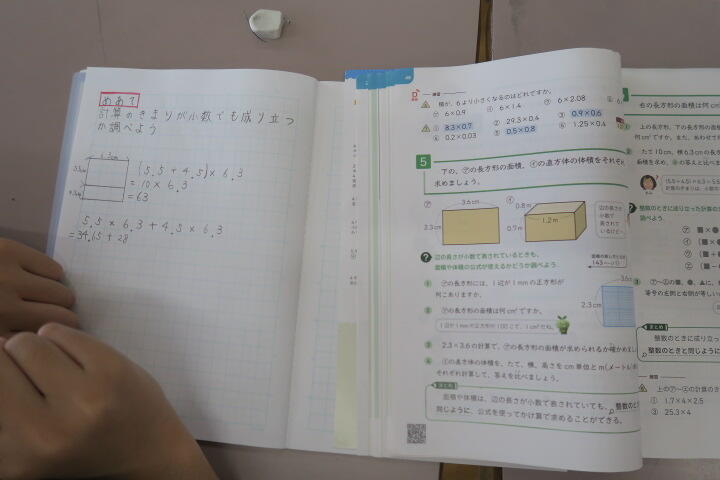 めあて
計算のきまりが小数でも成り立つ
か調べよう
6.3cm
(5.5+4.5)×6.3
=10×6.3
=63
5.5×6.3+4.5×6.3
=34.65+28
練習
積が、6より小さくなるのはどれですか。
㋐ 6×0.9 ㋑ 6×1.4 ㋒ 6×2.08
① 8.3×0.7 ② 29.3×0.4 ③ 0.9×0.6
④ 0.2×0.03 ⑤ 0.5×0.8 ⑥ 1.25×0.4
5
下の、㋐の長方形の面積、㋑の直方体の体積をそれぞれ
求めましょう。
㋐ 3.6cm
2.3cm
㋑ 0.8m
1.2m
0.7m
辺の長さが
小数で
表されて
いるけど…
辺の長さが小数で表されているときも、
面積や体積の公式が使えるかどうか調べよう。
① ㋐の長方形には、1辺が1mmの正方形が
何こありますか。
② ㋐の長方形の面積は何cm²ですか。
1辺が1mmの正方形が100こで、1cm²だね。
3.6cm
2.3cm
③ 2.3×3.6の計算で、㋐の長方形の面積が求められるか確かめ
④ ㋑の直方体の体積を、たて、横、高さをcm単位とm(メートル)
それぞれ計算して、答えを比べましょう。
まとめ
面積や体積は、辺の長さが小数で表されていても、整数の
同じように、公式を使ってかけ算で求めることができる。
右の長方形の面積は何
上の長方形、下の長方形の面積
何cm²ですか。また、あわせて
たて10cm、横6.3cmの長
面積を求め、
(5.5+4.5)×6.3=5.5
計算のきまりは、小数
整数のときに成り立った計算の
調べよう。
㋐
㋑
㋒
㋓
等号の左側と右側が等しい
まとめ
整数のときに成り立っ
整数のときと同じように
練習
上の㋐〜㋓の計算の
① 1.7×4×2.5
③ 25.3×4